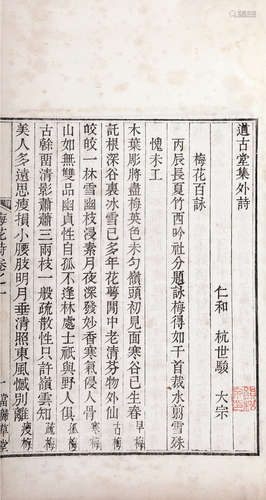 道古堂集外詩
仁和 杭世駿 大宗
梅花百詠
丙辰長夏竹西吟社分題詠梅得如干首裁水剪雪殊
愧未工
木葉彫將盡梅英色未勻嶺頭初見面寒谷已生春早梅
託根深谷裏冰雪已多年花萼閒中老清芬物外仙
皎皎一林雪幽枝浸素月夜深發妙香寒氣侵人骨寒梅
山如無雙品幽貞性自孤不逢林處士祇與野人俱孤梅
古榦兩清影蕭蕭三兩枝一般疏散性只許嶺雲知疏梅
美人多遠思瘦損小腰肢明月垂清照東風慽別離瘦梅
梅花詩